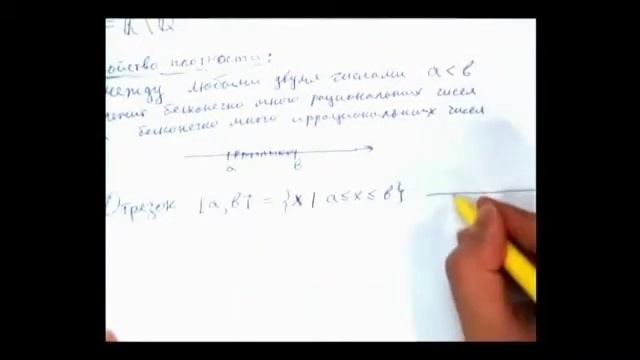 = ℝ \ ℚ
ойство плотности:
между любыми двумя числами a < в
бесконечно много рациональных чисел
бесконечно много иррациональных чисел
a в
Отрезок [a, в] = {x | a ≤ x ≤ в}